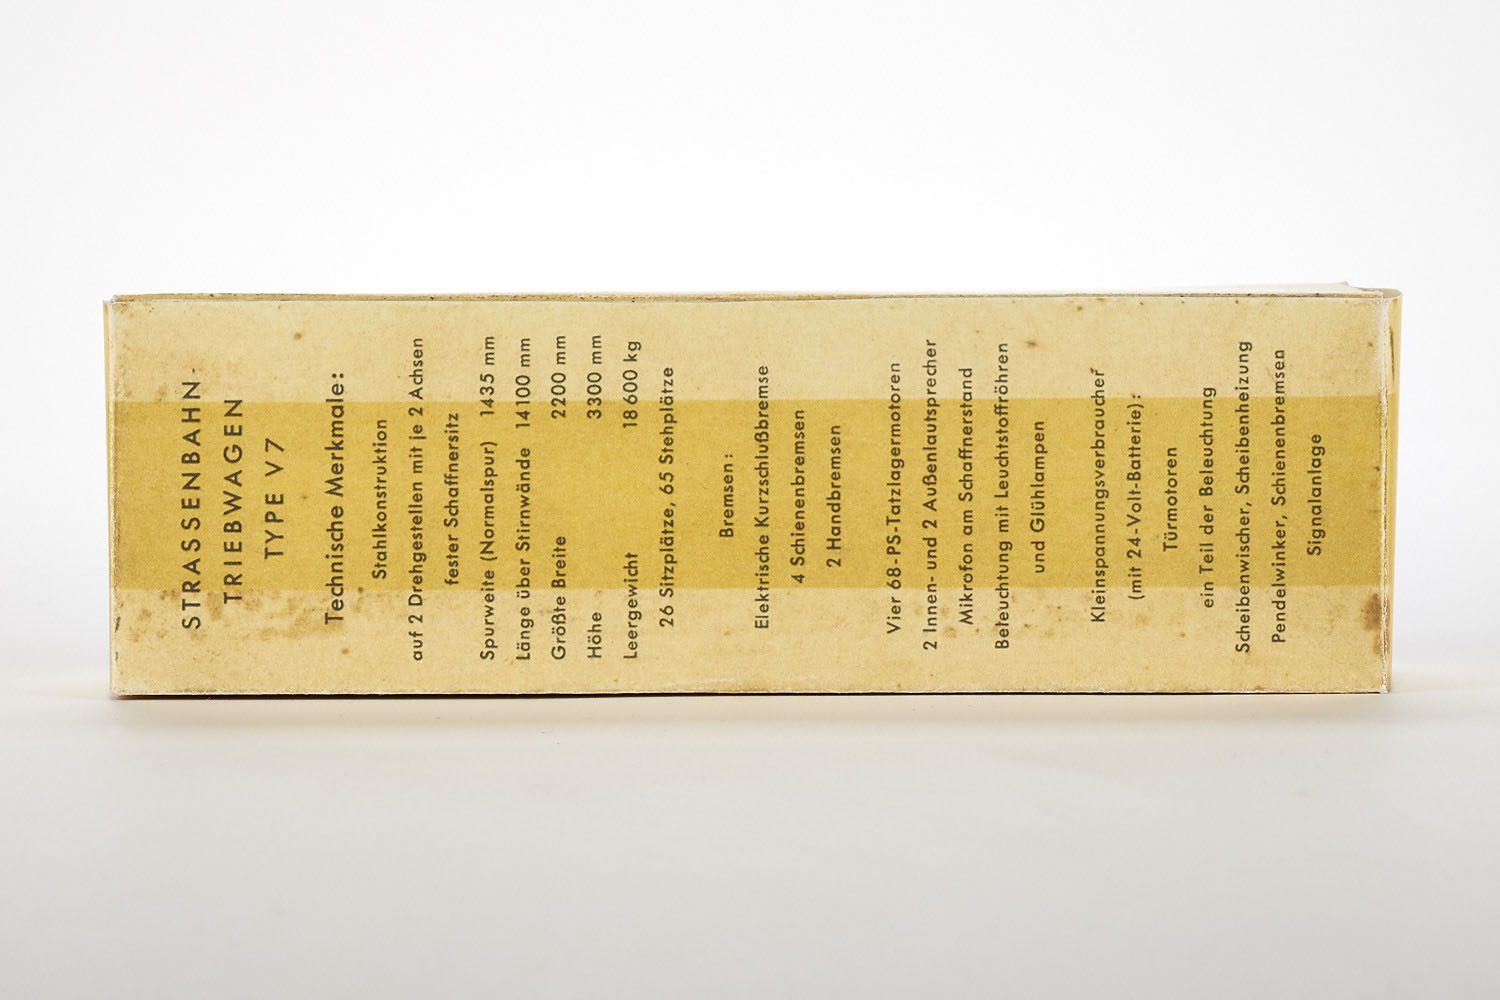 STRASSENBAHN-
TRIEBWAGEN
TYPE V7
Technische Merkmale:
Stahlkonstruktion
auf 2 Drehgestellen mit je 2 Achsen
fester Schaffnersitz
Spurweite (Normalspur) 1435 mm
Länge über Stirnwände 14100 mm
Größte Breite 2200 mm
Höhe 3300 mm
Leergewicht 18600 kg
26 Sitzplätze, 65 Stehplätze
Bremsen:
Elektrische Kurzschlußbremse
4 Schienenbremsen
2 Handbremsen
Vier 68-PS-Tatzlagermotoren
2 Innen- und 2 Außenlautsprecher
Mikrofon am Schaffnerstand
Beleuchtung mit Leuchtstoffröhren
und Glühlampen
Kleinspannungsverbraucher
(mit 24-Volt-Batterie):
Türmotoren
ein Teil der Beleuchtung
Scheibenwischer, Scheibenheizung
Pendelwinker, Schienenbremsen
Signalanlage